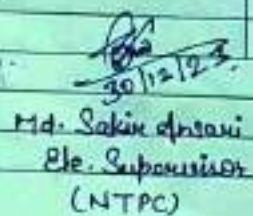 30/12/23
Md. Sakir Ansari
Ele. Supervisor
(NTPC)